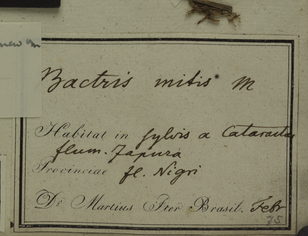 new m
Bactris mitis M
Habitat in sylvis a Cataractas
flum. Japura
Provinciae fl. Nigri
Dr Martius Iter Brasil. Febr